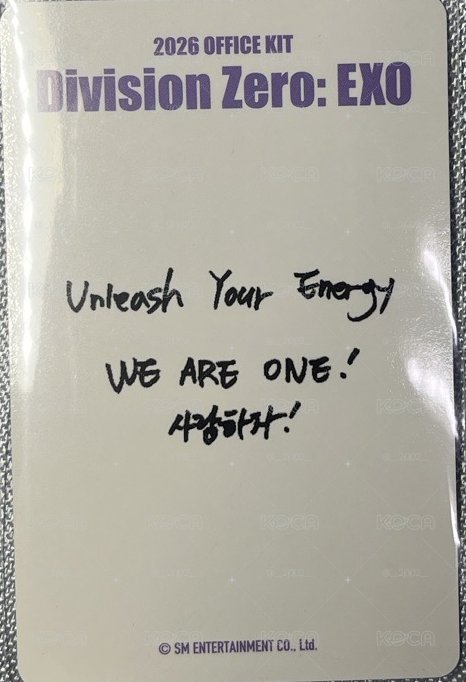 2026 OFFICE KIT
Division Zero: EXO
Unleash Your Energy
WE ARE ONE!
사랑하자!
© SM ENTERTAINMENT CO., Ltd.
KOCA
@_2j02_